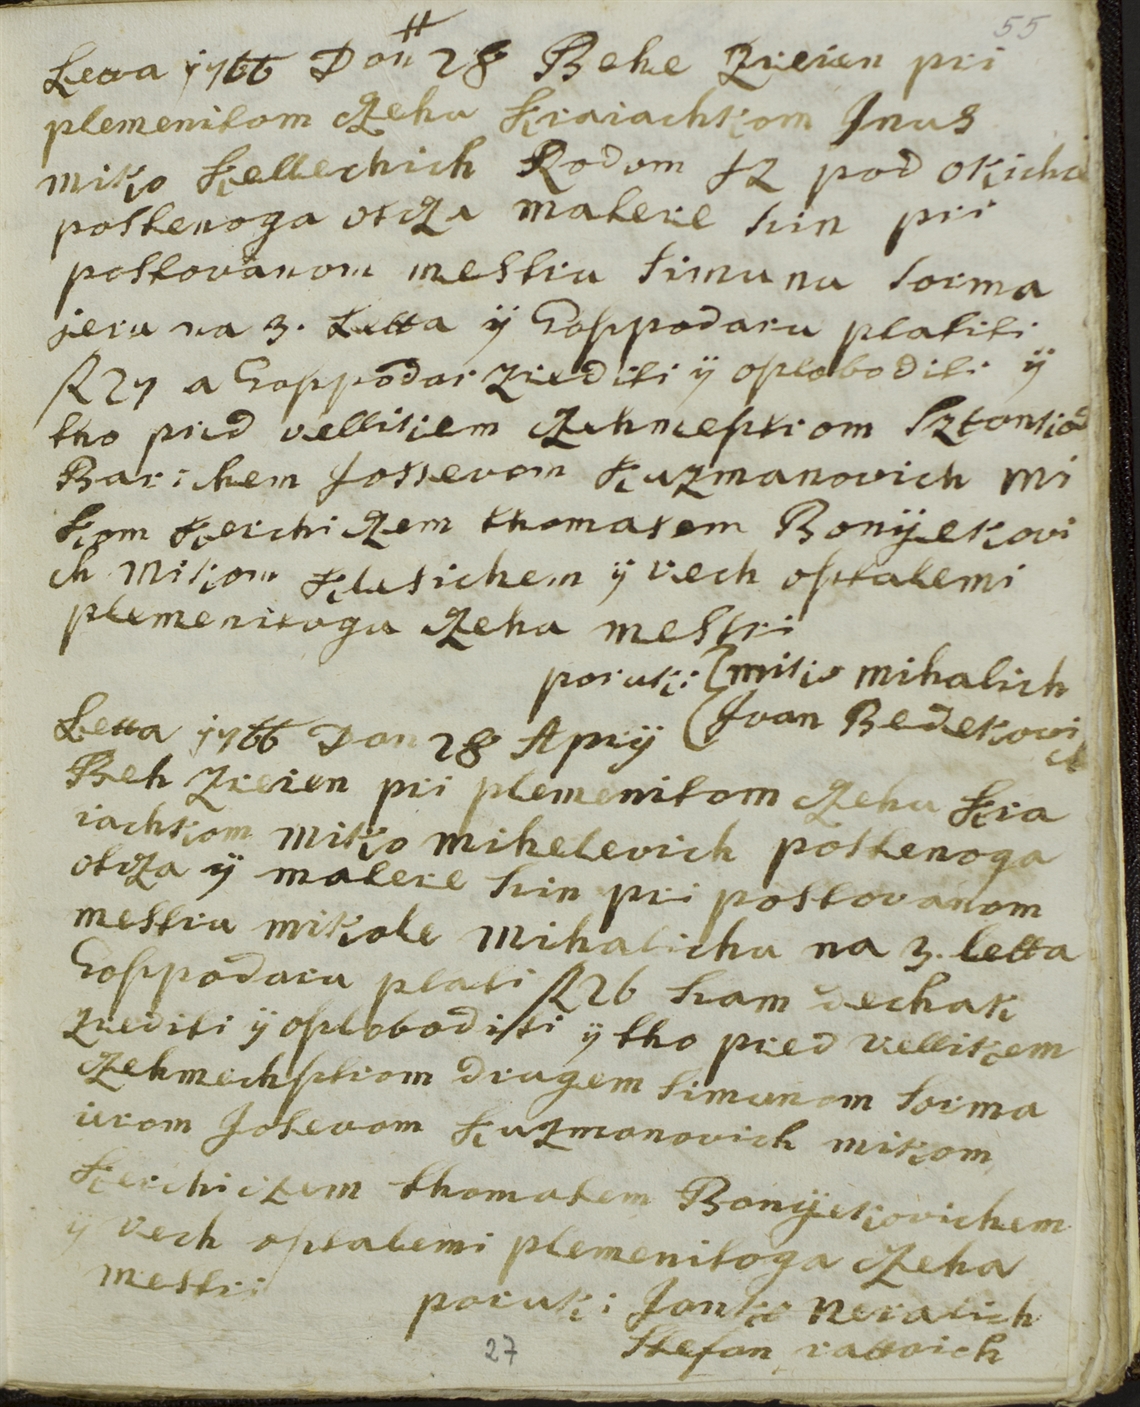 55
Letta 1766 Dan 28 Behe Zreien pri
plemenitom czehu kraiachkom Inus
Miko kellechich Rodom Iz pod okicha
postenoga otcza matere sin pri
postovanom mestru simunu sorma
jeru na 3. Letta ÿ Goszpodaru platiti
R 27 a Goszpodar zrediti ÿ oszloboditi ÿ
tho pred vellikem czehmesztrom Sztankod
Barichem Jossevom kuzmanovich Mi
kom kerchiczem thomasem Bonÿekovi
ch Mikom klesichem ÿ vech osztalemi
plemenitoga czeha mestri
poruki (miko mihalich
(Ivan Bedekovi
ch
Letta 1766 Dan 28 Aprÿ
Beh Zreien pri plemenitom czehu kra
iachkom Miko mihelevich postenoga
otcza ÿ matere sin pri postovanom
mestru mikole Mihalichu na 3. letta
Goszpodaru plati R 26 kam dechak
zrediti ÿ oszloboditi ÿ tho pred vellikem
czehmechsztrom drugem simunom sorma
jerom Josevom kuzmanovich mikom
kerchiczem thomasem Bonÿekovichem
ÿ vech osztalemi plemenitoga czeha
mestri
poruki Janko Neralich
Stefan rattvich
27